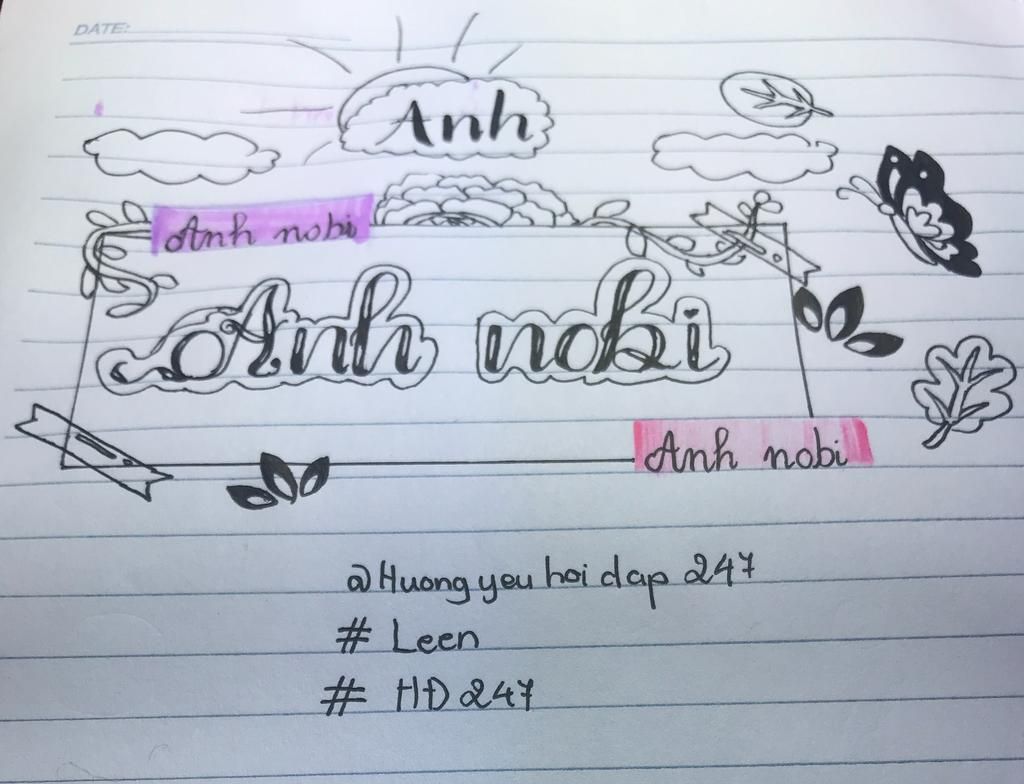 DATE:
Anh
Anh nobi
Anh nobi
Anh nobi
@Huongyeu hoi dap 247
# Leen
# HĐ 247